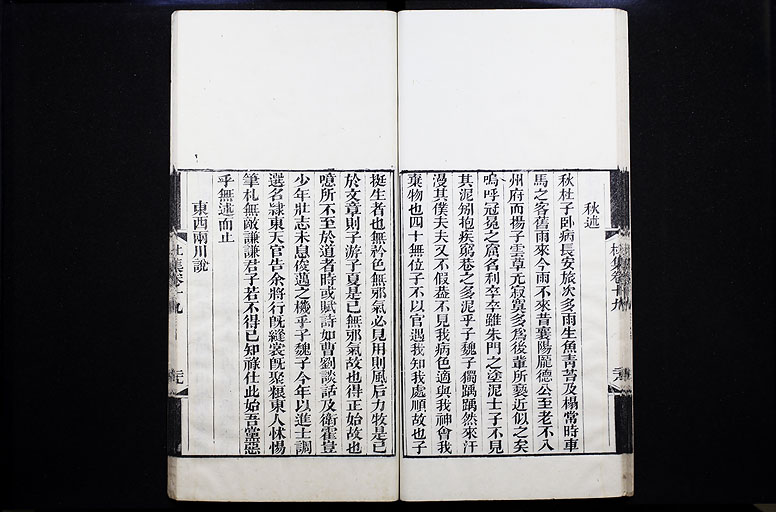 秋述
秋杜子卧病長安旅次多雨生魚青苔及榻常時車
馬之客舊雨來今雨不來昔襄陽龐德公至老不入
州府而楊子雲草元寂寞多爲後輩所褻近似之矣
嗚呼冠冕之窟名利卒卒雖朱門之塗泥士子不見
其泥矧抱疾窮巷之多泥乎子魏子獨踽踽然來汗
漫其僕夫夫又不假蓋不見我病色適與我神會我
棄物也四十無位子不以官遇我知我處順故也子
挺生者也無矜色無邪氣必見用則風后力牧是已
於文章則子游子夏是已無邪氣故也得正始故也
噫所不至於道者時或賦詩如曹劉談話及衛霍豈
少年壯志未息俊邁之機乎子魏子今年以進士調
選名隸東天官告余將行旣縫裳旣聚糧東人怵惕
筆札無敵謙謙君子若不得已知祿仕此始吾黨惡
乎無述而止
東西兩川說
杜集卷十九